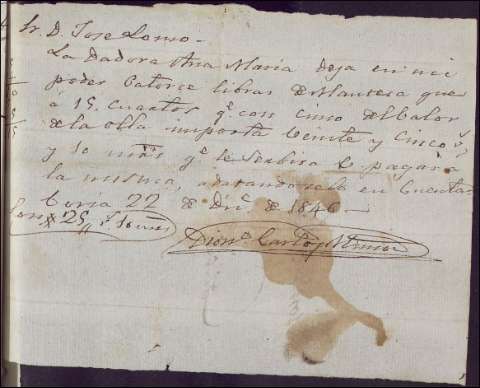 Sr. D. Jose Lomo.
La Dadora Ana Maria deja en mi
poder Catorce libras de Manteca que
á 15 cuartos q.e con cinco del valor
de la olla importa veinte y cinco
y 10 mrs q.e le servira pagara
la misma, en Cuenta
Coria 22 de Dic.e de 1846
Son 25 r.s 10 mrs
Dion.o